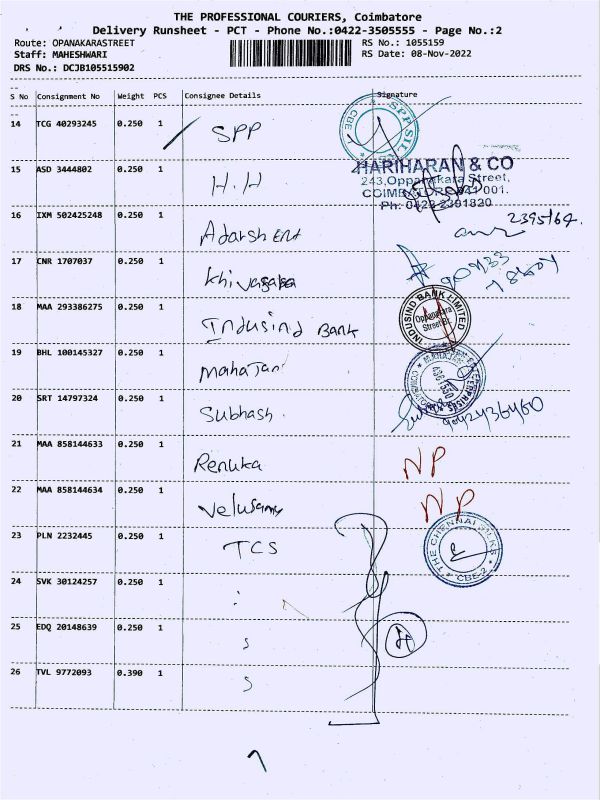 THE PROFESSIONAL COURIERS, Coimbatore
Delivery Runsheet - PCT - Phone No.:0422-3505555 - Page No.:2
Route: OPANAKARASTREET RS No.: 1055159
Staff: MAHESHWARI RS Date: 08-Nov-2022
DRS No.: DCJB105515902
S No Consignment No Weight PCS Consignee Details Signature
14 TCG 40293245 0.250 1 SPP
CBE SPP SIL
15 ASD 3444802 0.250 1 H.H
HARIHARAN & CO
243, Oppanakara Street,
COIMBATORE 641 001.
Ph: 0422 2391820
16 IXM 502425248 0.250 1 Adarsh
17 CNR 1707037 0.250 1
18 MAA 293386275 0.250 1 Indusind Bank
INDUSIND BANK LIMITED
Oppanakara
Street Br.
19 BHL 100145327 0.250 1 Mahajan
20 SRT 14797324 0.250 1 Subhash
21 MAA 858144633 0.250 1 Renuka NP
22 MAA 858144634 0.250 1 Velusamy NP
23 PLN 2232445 0.250 1 TCS
THE CHENNAI SILKS
CBE-2
24 SVK 30124257 0.250 1
25 EDQ 20148639 0.250 1 S
26 TVL 9772093 0.390 1 S